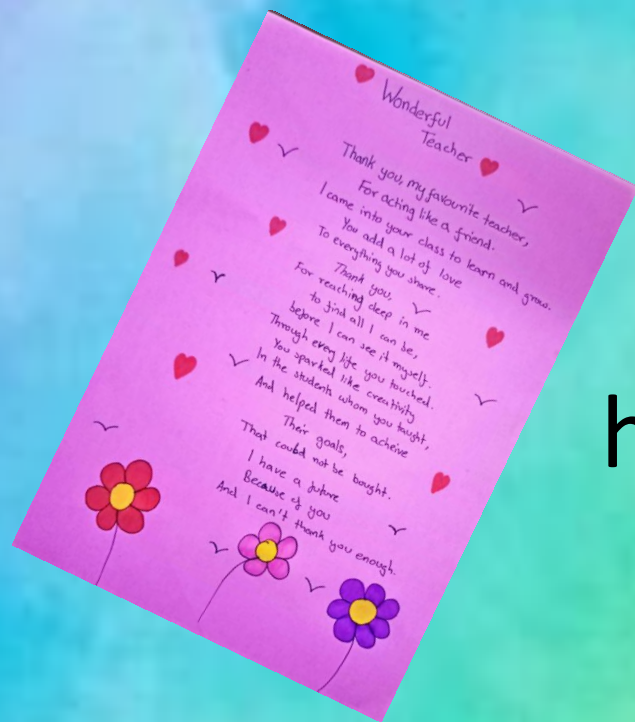 Wonderful
Teacher
Thank you, my favourite teacher,
For acting like a friend.
I came into your class to learn and grow.
You add a lot of love
To everything you share.
Thank you,
For reaching deep in me
to find all I can be,
before I can see it myself.
Through every life you touched.
You sparked like creativity
In the students whom you taught,
And helped them to acheive
Their goals,
That could not be bought.
I have a future
Because of you
And I can't thank you enough.
h